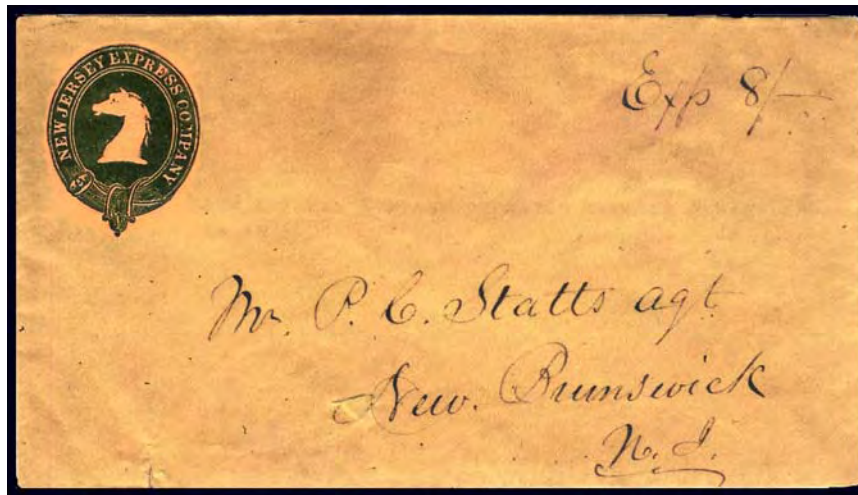 NEW JERSEY EXPRESS COMPANY
Exp 8/-
Mr. P. C. Statts agt.
New. Brunswick
N. J.